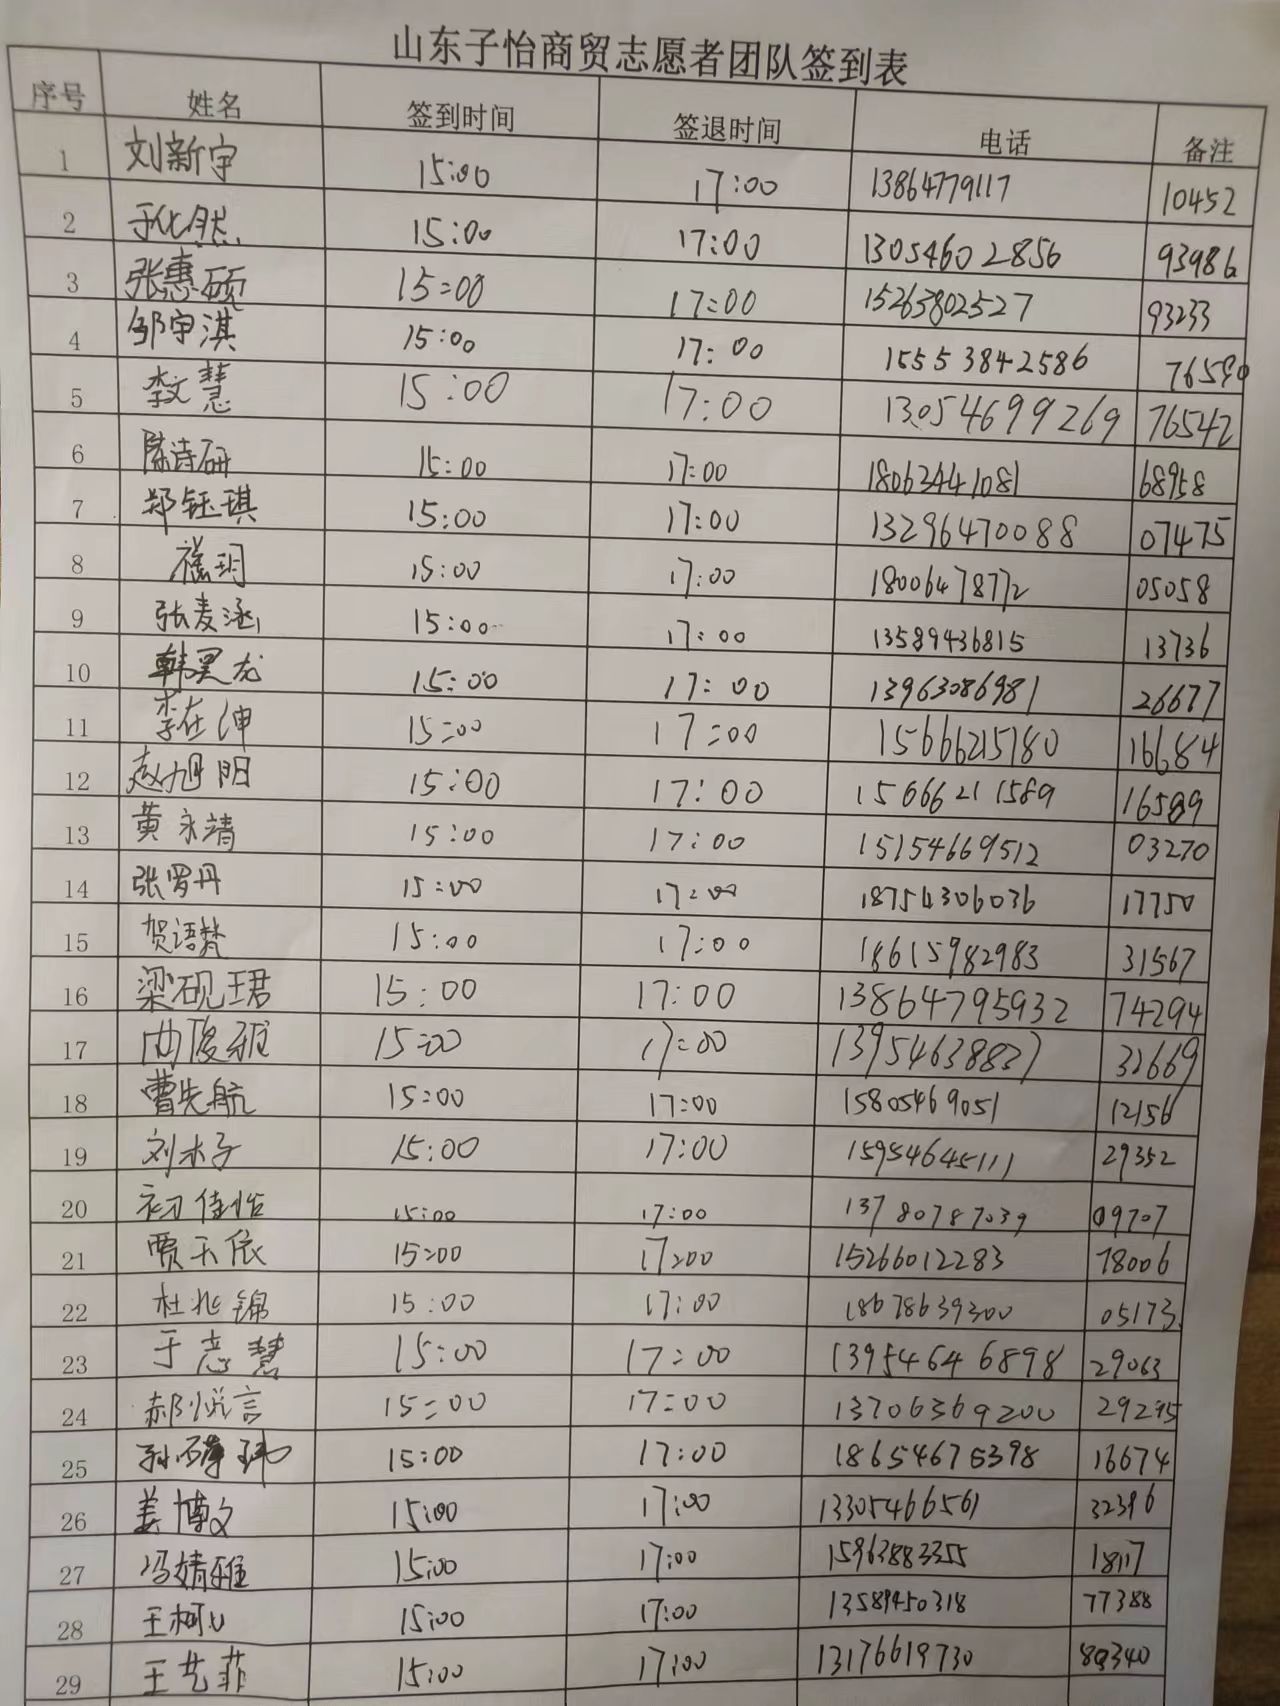 山东子怡商贸志愿者团队签到表
序号 姓名 签到时间 签退时间 电话 备注
1 刘新宇 15:00 17:00 13864779117 10452
2 于化然 15:00 17:00 13054602856 93986
3 张惠硕 15:00 17:00 15263802527 93233
4 邹宇淇 15:00 17:00 15553842586 76590
5 李文慧 15:00 17:00 13054699269 76542
6 陈诗研 15:00 17:00 18063441081 68958
7 郑钰琪 15:00 17:00 13296470088 07475
8 15:00 17:00 18006478772 05058
9 张麦涵 15:00 17:00 13589436815 13736
10 韩昊龙 15:00 17:00 13963086981 26677
11 李在坤 15:00 17:00 15666215780 16684
12 赵旭阳 15:00 17:00 15666211589 16589
13 黄永靖 15:00 17:00 15154669512 03270
14 张罗丹 15:00 17:00 18754306036 17750
15 贺语梵 15:00 17:00 18615982983 31567
16 梁砚珺 15:00 17:00 13864795932 74294
17 15:00 17:00 13954638837 32669
18 曹先航 15:00 17:00 15805469051 12156
19 刘木子 15:00 17:00 15954645111 29352
20 初佳怡 15:00 17:00 13780787039 09707
21 贾天依 15:00 17:00 15266012283 78006
22 杜兆锦 15:00 17:00 18678639300 05173
23 于志慧 15:00 17:00 13954646898 29063
24 郝悦言 15:00 17:00 13706369200 29295
25 15:00 17:00 18654675398 16674
26 姜博文 15:00 17:00 13305466561 32396
27 冯婧雅 15:00 17:00 15963883355 18117
28 王柯 15:00 17:00 13589450318 77388
29 王艺菲 15:00 17:00 13176619730 80340